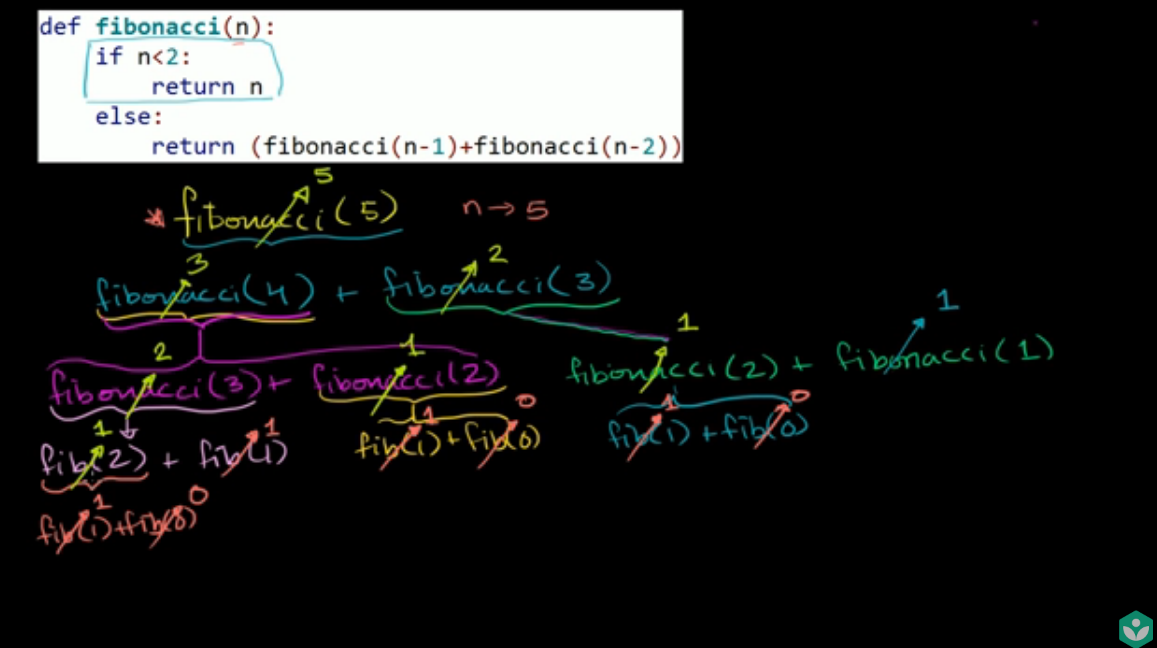 def fibonacci(n):
if n<2:
return n
else:
return (fibonacci(n-1)+fibonacci(n-2))
5
* fibonacci(5) n→5
3 2
fibonacci(4) + fibonacci(3)
1
2 1 1
fibonacci(2) + fibonacci(1)
fibonacci(3)+ fibonacci(2)
1 1 1 0 1 0
fib(1)+fib(0) fib(1)+fib(0)
fib(2) + fib(1)
1 0
fib(1)+fib(0)